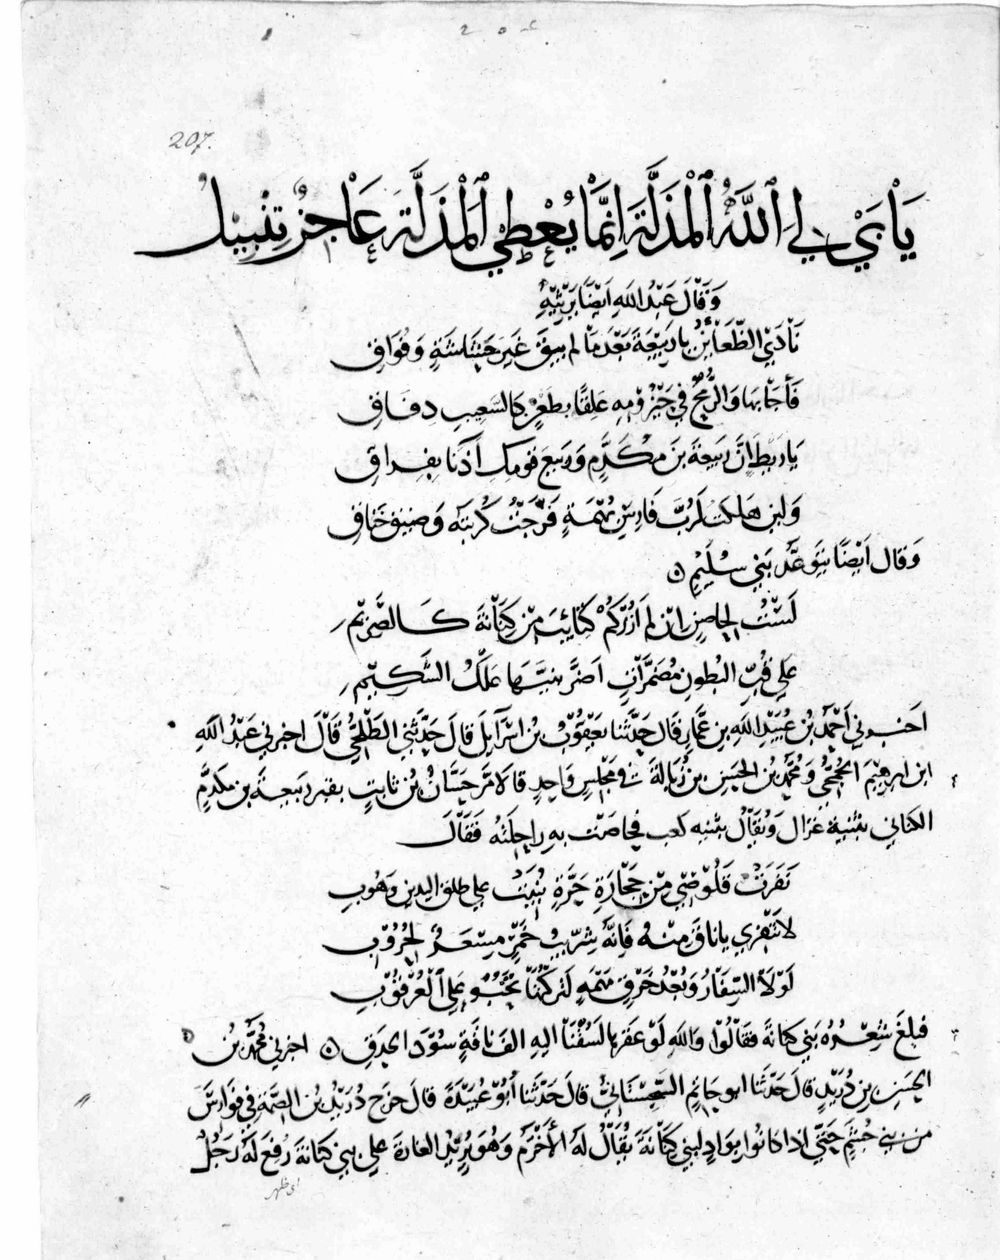 ٢٠٤
207.
يَأْبَىٰ لِي اللَّهُ الْمَذَلَّةَ إِنَّمَا يُعْطِي الْمَذَلَّةَ عَاجِزٌ تِنْبِيلُ
وَقَالَ عَبْدُ اللَّهِ أَيْضًا يَرْثِيهِ
نَادَي الظَّعَائِنُ يا رَبِيعَةَ بَعْدَمَا لم يبقَ غَيرَ حُشَاشَةٍ وَفُوَاقِ
فَأَجَابَها وَالرُّمْحُ في حَيْزُومِهِ عَلِقًا بِطَعْنٍ كَالشَّعِيبِ دِفَاقِ
يَا رَيطَ إِنَّ رَبِيعَةَ بنَ مُكَدَّمٍ وَرَبيعَ قومِكِ آذَنَا بِفِرَاقِ
وَلَئِن هَلَكتَ لَرُبَّ فَارِسِ بُهْمَةٍ فَرَّجْتَ كُرْبَتَه وَضِيقِ خِنَاقِ
وَقَال أَيْضًا يَتَوَعَّدُ بَنِي سُلَيْمٍ
لَسْتُ لِحَاصِنٍ إن لم أَزُرْكُمْ كَتَائِبَ مِنْ كِنَانَةَ كَالصَّرِيمِ
عَلى قُبِّ البُطُونِ مُضَمَّرَاتٍ أضَرَّ بِنَيِّهَا عَلْكُ الشَّكِيمِ
أخبرني أَحْمَدُ بْنُ عُبَيْدِ اللَّهِ بنِ عَمَّارٍ قَال حَدَّثَنَا يَعْقُوبُ بنُ إسْرَآئِيلَ قَالَ حَدَّثَنِي الطَّلْحِيُّ قَالَ اخبرني عَبْدُ الله
ابن ابرهِيمَ الجُمَحِيُّ وَمُحَمَّدُ بنُ الحَسَنِ بنِ زَبَالَةَ في مَجْلِسٍ وَاحِدٍ قالا مَرَّ حَسَّانُ بْنُ ثَابِتٍ بقبر رَبِيعَةَ بنِ مُكَدَّمٍ
الكناني بِثَنِيَّةِ غَزَال وَيُقَالُ بثنيه كَعْبٍ فَحَاصَتْ بِهِ رَاحِلَتُهُ فَقَالَ
نَفَرَتْ قَلُوصِي مِنْ حِجَارَةِ حَرَّةٍ بُنِيَتْ عَلي طَلقِ اليَدينِ وَهُوبِ
لا تَنْفِرِي يا نَاقَ مِنْهُ فَإِنَّهُ شِرِّيبُ خَمْرٍ مِسْعَرٌ لِحُرُوبِ
لَوْلَا السِّفَارُ وَبُعْدُ خَرْقٍ مَهْمَهٍ لَتَرَكْتُهَا تَحْبُو عَلي الْعُرْقُوبِ
فبلغَ شِعْرُهُ بَنِي كِنَانَةَ فَقَالُوا وَاللهِ لَوْ عَقَرَها لَسُقْنَا اليه الف نَاقَةٍ سُودَ الحدقِ اخبرني مُحَمَّدُ بنُ
الحَسَنِ بنِ دُرَيْدٍ قالَ حَدَّثَنَا أبو حَاتِمٍ السِّجِسْتَانِيُّ قَالَ حَدَّثَنَا أَبُو عُبَيْدَةَ قَالَ خَرَجَ دُرَيْدُ بنُ الصِّمَّةِ في فَوَارِسَ
مِن بني جُشَمٍ حَتَّى اذا كانُوا بِوَادٍ لِبَنِي كِنَانَةَ يُقَالُ لَهُ الأَخْرَم وَهُوَ يُرِيدُ الغارةَ على بني كِنَانَةَ رُفِعَ لَهُ رَجُلٌ
اي ظهر